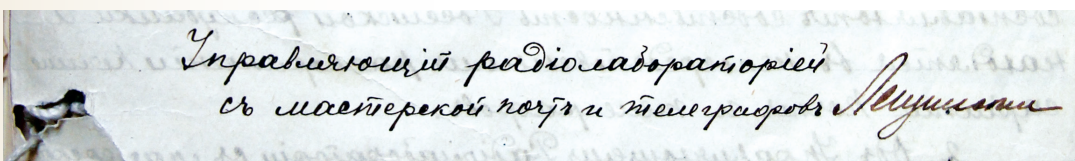 Управляющій радіолабораторіей
съ мастерской почтъ и телеграфовъ